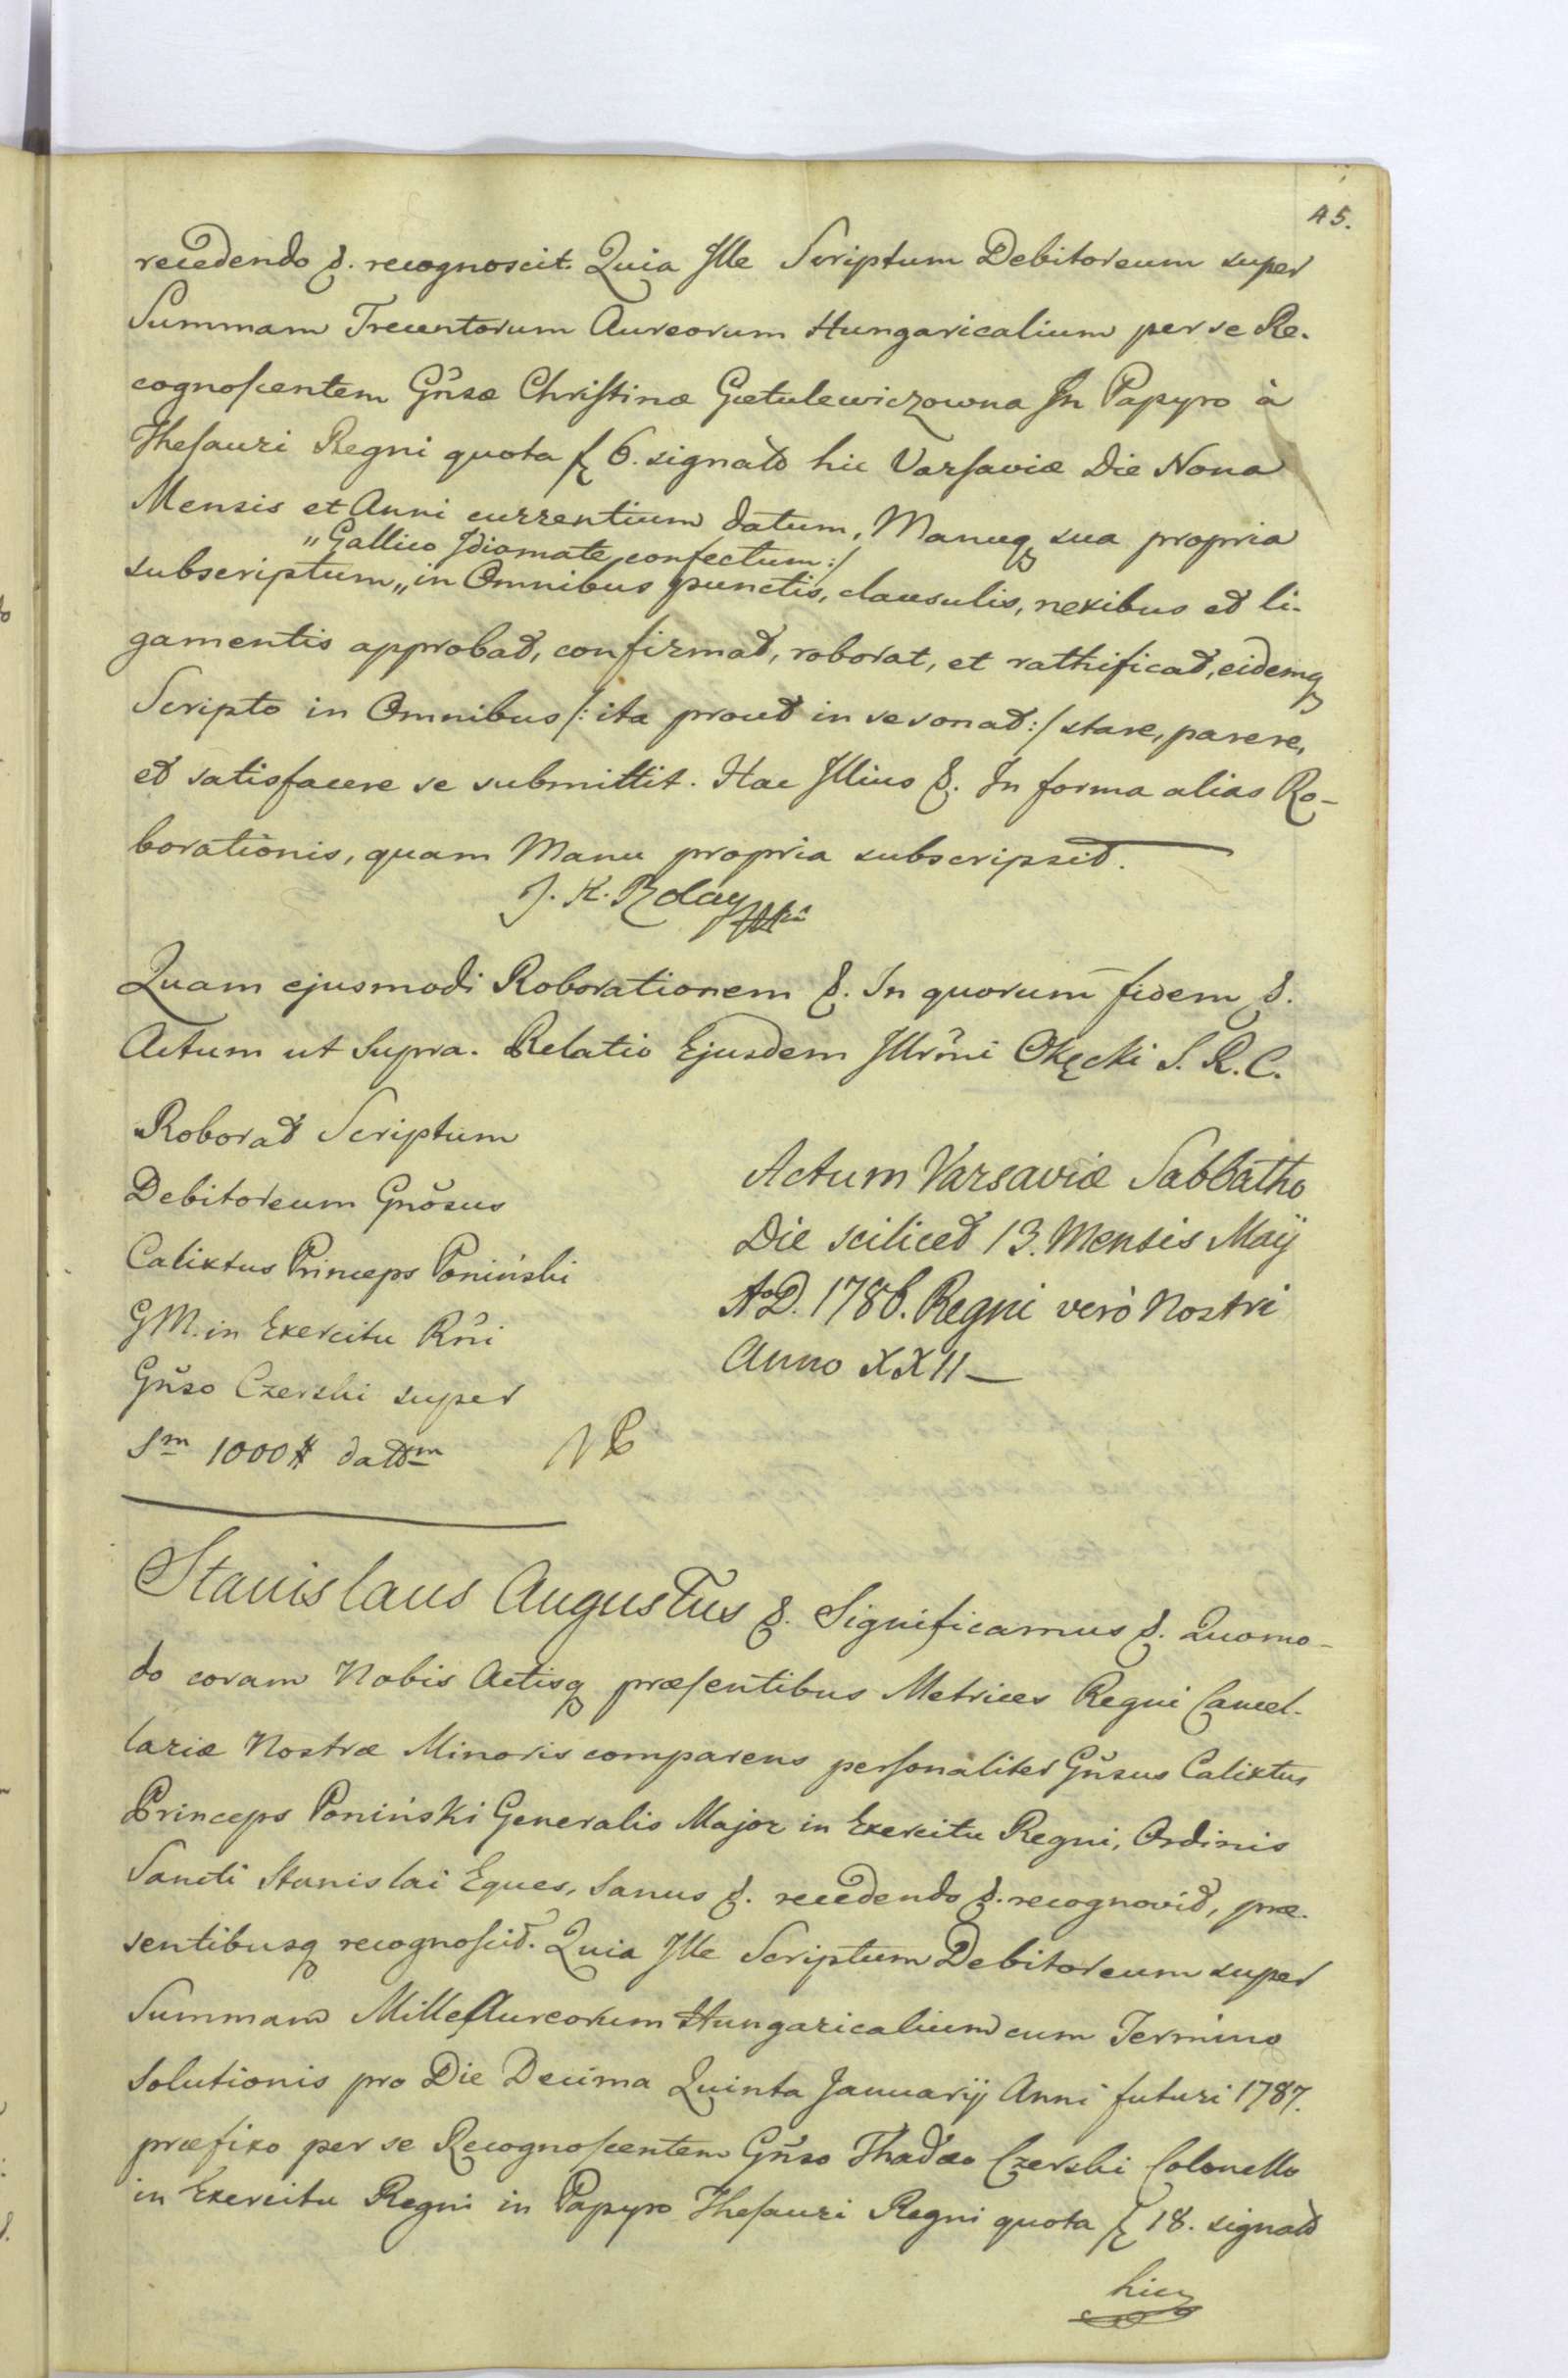 45.
recedendo &. recognoscit. Quia Ille Scriptum Debitoreum super
Summam Trecentorum Aureorum Hungaricalium per se Re-
cognoscentem Gñsæ Christinæ Gœtulewiczowna In Papyro à
Thesauri Regni quota f 6. signato hic Varsaviæ Die Nona
Mensis et Anni currentium datum, Manuq sua propria
„Gallico Idiomate confectum:/
subscriptum„ in Omnibus punctis, clausulis, nexibus et li-
gamentis approbat, confirmat, roborat, et rathificat, eidemq
Scripto in Omnibus /: ita prout in se sonat :/ stare, parere,
et satisfacere se submittit. Hac Illius &. In forma alias Ro-
borationis, quam Manu propria subscripsit.
J. K.
Quam ejusmodi Roborationem &. In quorum fidem &.
Actum ut supra. Relatio Ejusdem Illrmi Okęcki S. R. C.
Roborat Scriptum
Debitoreum Gnõsus
Calixtus Princeps Poniński
GM. in Exercitu Rñi
Gñso Czerski super
Sm 1000 # dattm
Actum Varsaviæ Sabbatho
Die scilicet 13. Mensis Maÿ
AoD. 1786. Regni verò Nostri
Anno XXII
Stanislaus Augustus &. Significamus &. Quomo-
do coram Nobis Actisq præsentibus Metrices Regni Cancel-
lariæ Nostræ Minoris comparens personaliter Gñsus Calixtus
Princeps Poniński Generalis Major in Exercitu Regni, Ordinis
Sancti Stanislai Eques, sanus &. recedendo &. recognovit, præ-
sentibusq recognoscit. Quia Ille Scriptum Debitoreum super
Summam Mille Aureorum Hungaricalium cum Termino
Solutionis pro Die Decima Quinta Januarij Anni futuri 1787.
præfixo per se Recognoscentem Gñso Thadæo Czerski Colonello
in Exercitu Regni in Papyro Thesauri Regni quota f 18. signato
hic